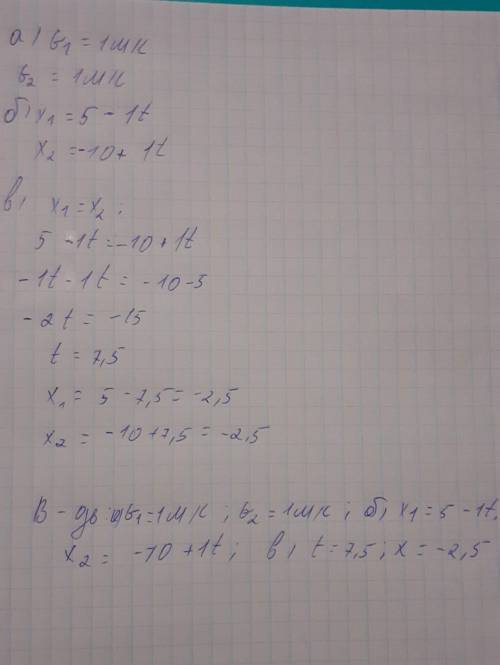 а) v₁ = 1 м/с
v₂ = 1 м/с
б) x₁ = 5 - 1t
x₂ = -10 + 1t
в) x₁ = x₂;
5 - 1t = -10 + 1t
-1t - 1t = -10 - 5
-2t = -15
t = 7,5
x₁ = 5 - 7,5 = -2,5
x₂ = -10 + 7,5 = -2,5
В-дь: а) v₁ = 1 м/с; v₂ = 1 м/с; б) x₁ = 5 - 1t,
x₂ = -10 + 1t; в) t = 7,5; x = -2,5